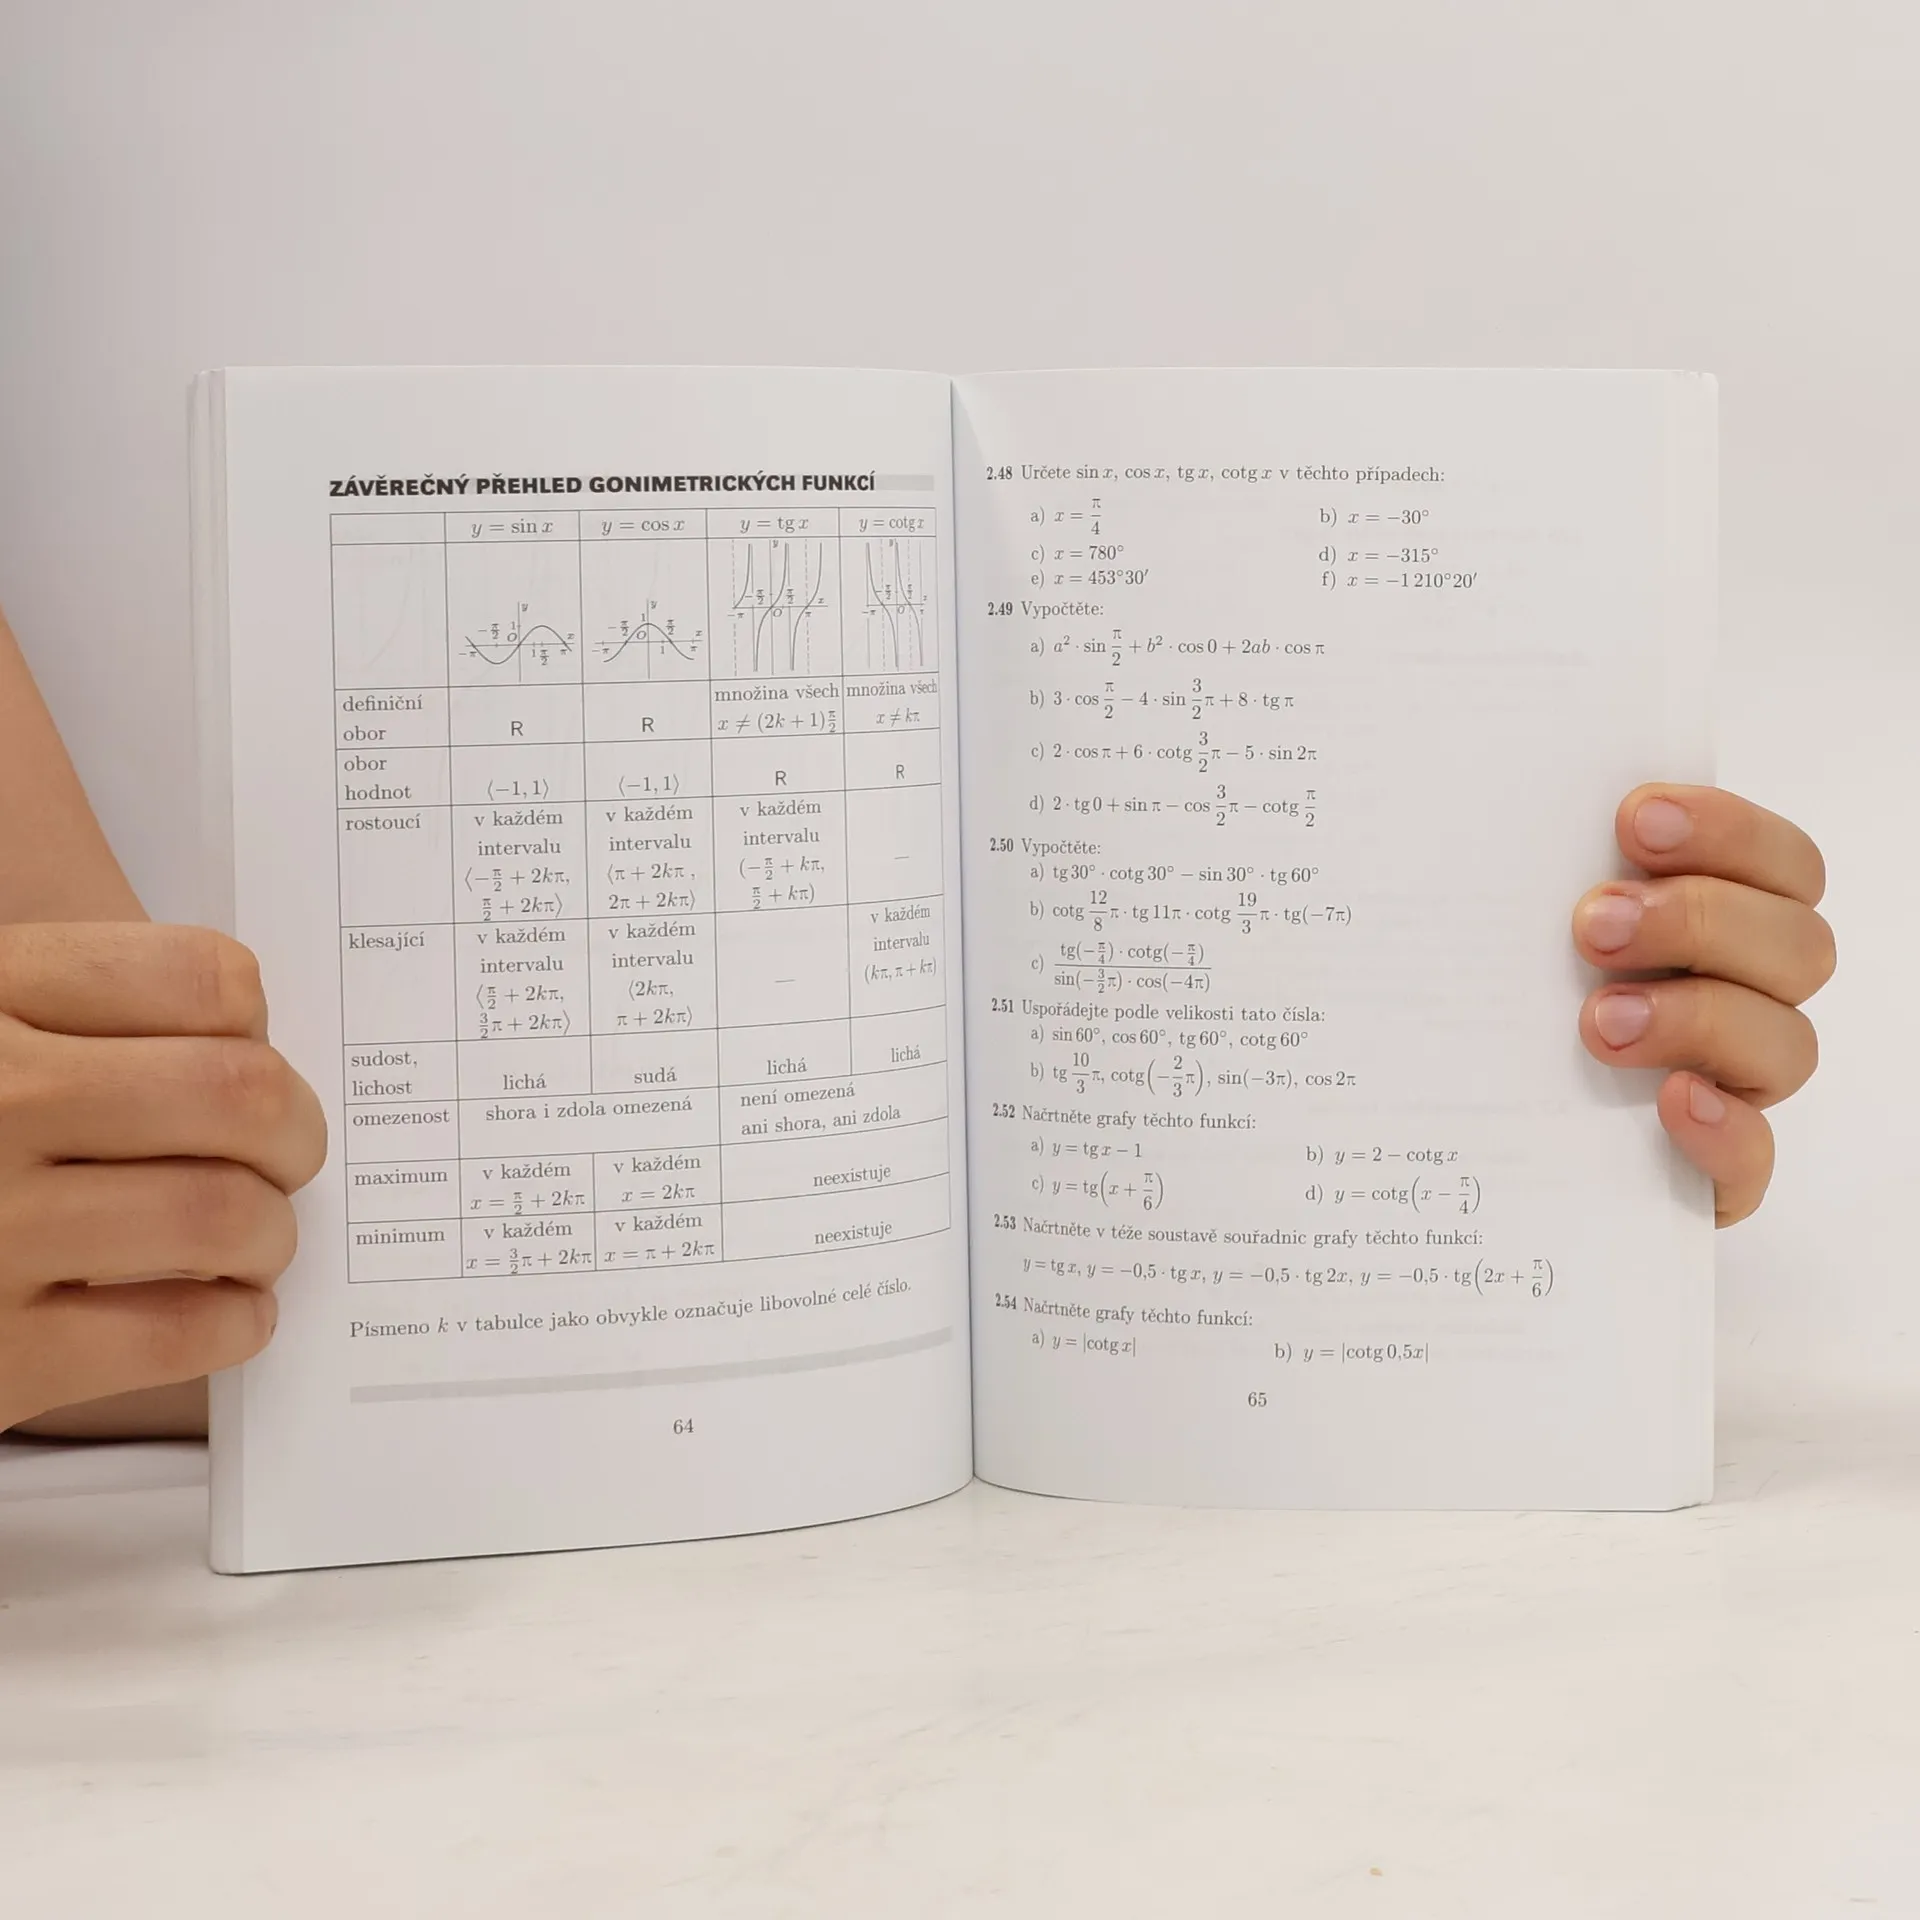 ZÁVĚREČNÝ PŘEHLED GONIMETRICKÝCH FUNKCÍ
y = sin x | y = cos x | y = tg x | y = cotg x
definiční obor | R | R | množina všech x ≠ (2k + 1)π/2 | množina všech x ≠ kπ
obor hodnot | ⟨−1, 1⟩ | ⟨−1, 1⟩ | R | R
rostoucí | v každém intervalu ⟨−π/2 + 2kπ, π/2 + 2kπ⟩ | v každém intervalu ⟨π + 2kπ, 2π + 2kπ⟩ | v každém intervalu (−π/2 + kπ, π/2 + kπ) | —
klesající | v každém intervalu ⟨π/2 + 2kπ, 3/2π + 2kπ⟩ | v každém intervalu ⟨2kπ, π + 2kπ⟩ | — | v každém intervalu (kπ, π + kπ)
sudost, lichost | lichá | sudá | lichá | lichá
omezenost | shora i zdola omezená | není omezená ani shora, ani zdola
maximum | v každém x = π/2 + 2kπ | v každém x = 2kπ | neexistuje
minimum | v každém x = 3/2π + 2kπ | v každém x = π + 2kπ | neexistuje
Písmeno k v tabulce jako obvykle označuje libovolné celé číslo.
64
2.48 Určete sin x, cos x, tg x, cotg x v těchto případech:
a) x = π/4 b) x = −30°
c) x = 780° d) x = −315°
e) x = 453°30′ f) x = −1 210°20′
2.49 Vypočtěte:
a) a² · sin π/2 + b² · cos 0 + 2ab · cos π
b) 3 · cos π/2 − 4 · sin 3/2π + 8 · tg π
c) 2 · cos π + 6 · cotg 3/2π − 5 · sin 2π
d) 2 · tg 0 + sin π − cos 3/2π − cotg π/2
2.50 Vypočtěte:
a) tg 30° · cotg 30° − sin 30° · tg 60°
b) cotg 12/8π · tg 11π · cotg 19/3π · tg(−7π)
c) tg(−π/4) · cotg(−π/4) / sin(−3/2π) · cos(−4π)
2.51 Uspořádejte podle velikosti tato čísla:
a) sin 60°, cos 60°, tg 60°, cotg 60°
b) tg 10/3π, cotg(−2/3π), sin(−3π), cos 2π
2.52 Načrtněte grafy těchto funkcí:
a) y = tg x − 1 b) y = 2 − cotg x
c) y = tg(x + π/6) d) y = cotg(x − π/4)
2.53 Načrtněte v téže soustavě souřadnic grafy těchto funkcí:
y = tg x, y = −0,5 · tg x, y = −0,5 · tg 2x, y = −0,5 · tg(2x + π/6)
2.54 Načrtněte grafy těchto funkcí:
a) y = |cotg x| b) y = |cotg 0,5x|
65